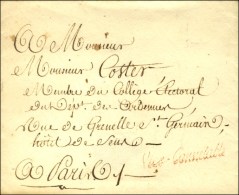 A Monsieur
Monsieur Coster
Membre du Collège Electoral
du Dép.t des Ardennes,
Rue de Grenelle St Germain,
hôtel de Sens
A Paris